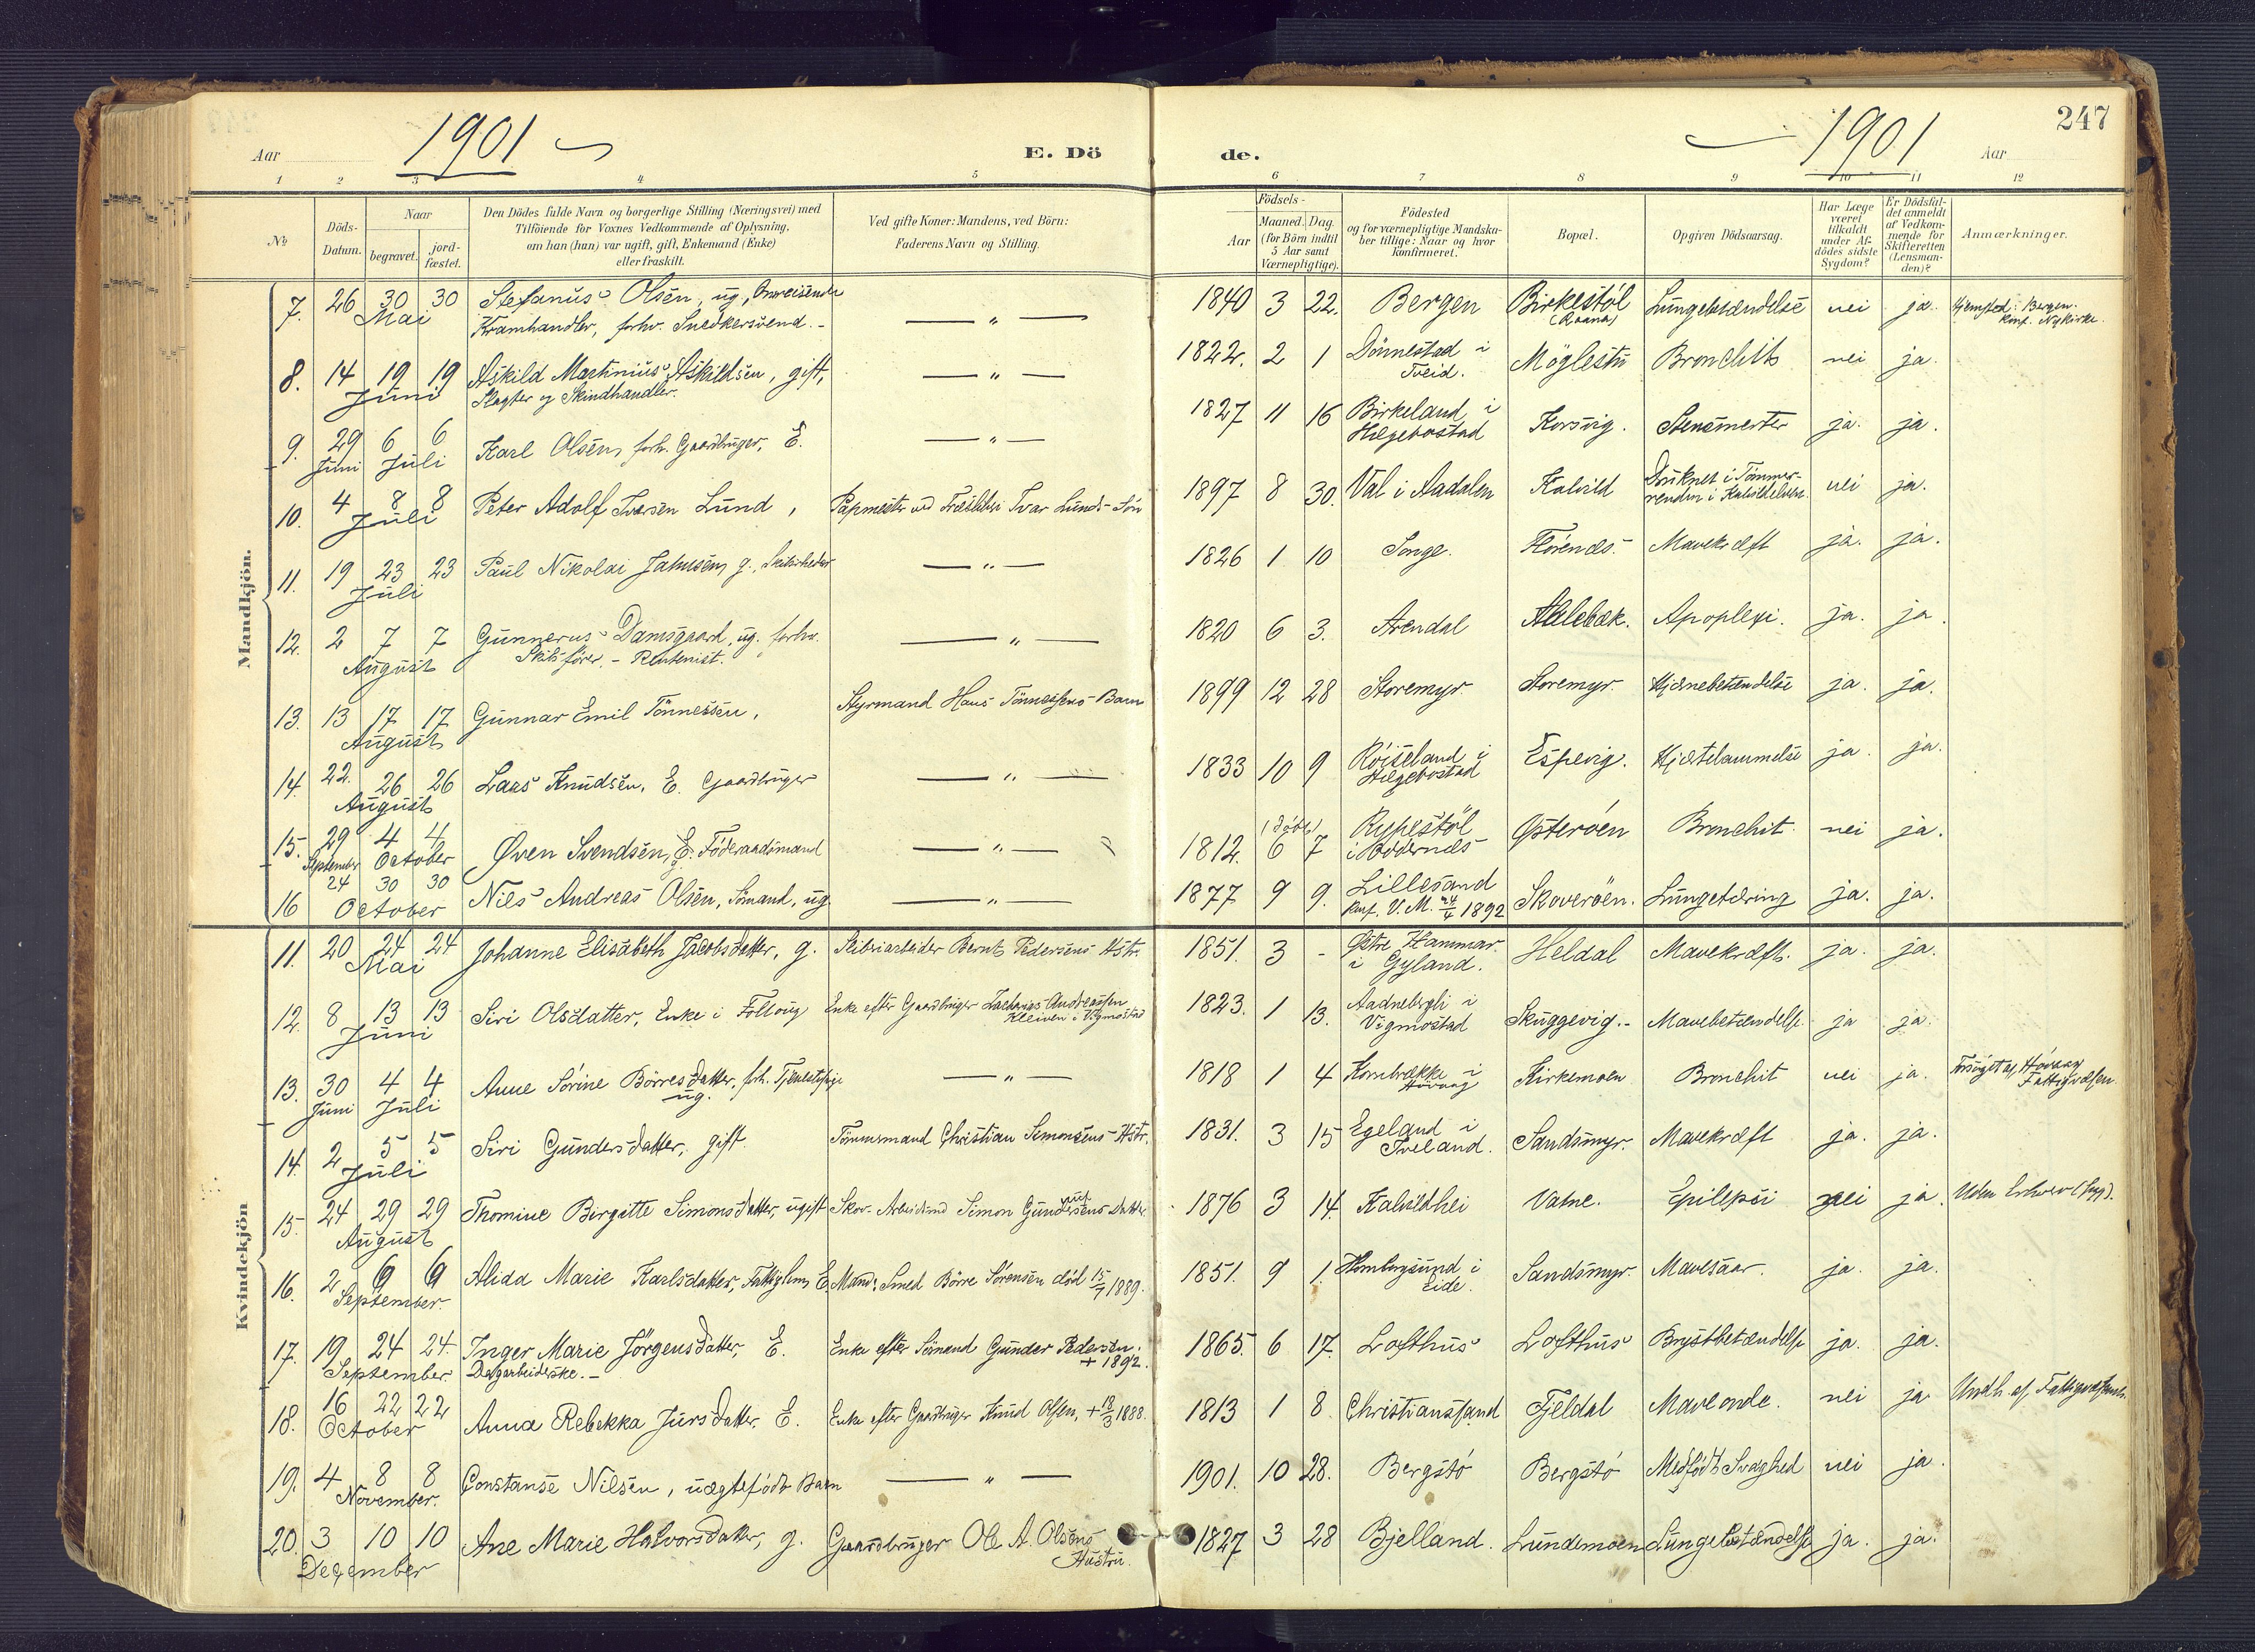 247
1901
1901
Aar
E. Dö
de.
Aar
1 2 3 4 5 6 7 8 9 10 11 12
No
Döds-
Datum.
Naar
begravet.
jord-
fæstet.
Den Dödes fulde Navn og borgerlige Stilling (Næringsvei) med
Tilföiende for Voxnes Vedkommende af Oplysning,
om han (hun) var ugift, gift, Enkemand (Enke)
eller fraskilt.
Ved gifte Koner: Mandens, ved Börn:
Faderens Navn og Stilling.
Födsels-
Aar
Maaned. Dag.
(for Börn indtil
5 Aar samt
Værnepligtige).
Födested
og for værnepligtige Mandska-
ber tillige: Naar og hvor
konfirmeret.
Bopæl.
Opgiven Dödsaarsag.
Har Læge
været
tilkaldt
under Af-
dödes sidste
Sygdom?
Er Dödsfal-
det anmeldt
af Vedkom-
mende for
Skifteretten
(Lensman-
den)?
Anmærkninger.
Mandkjön.
7. 26 30 30 Stefanus Olsen, ug., Omreisende — " — 1840 3 22. Bergen Birkestöl Lungebetændelse nei ja. Hjemsted: Bergen.
Mai Kramhandler, forhv. Snedkersvend. Konf. Nykirke.
8. 14 19 19 Askild Martinius Askildsen, gift, — " — 1822. 2 1 Dönnestad i Möglestu Bronchit nei ja.
Juni Slagter og Skindhandler. Tveid.
9. 29 6 6 Karl Olsen, forh. Gaardbruger, E. — " — 1827 11 16 Birkeland i Korsvig. Stensmerter ja. ja.
Juni Juli Hægebostad
10. 4 8 8 Peter Adolf Iversen Lund, Papmester ved Træsliberi Ivar Lunds Sön 1897 8 30. Val i Aadalen Kalvild Druknet i Tömmer- nei ja.
Juli renden i Kalvildelven.
11. 19 23 23 Paul Nikolai Jahnsen, g., — " — 1826 1 10 Songe. Flörenæs. Mavekræft ja. ja.
Juli
12. 2 7 7 Gunnerus Damsgaard, ug. forhv. — " — 1820 6 3. Arendal Aalebæk. Apoplexi. ja. ja
August Skibsförer. - Rentenist.
13. 13 17 17 Gunnar Emil Tönnessen, Styrmand Hans Tönnessens Barn 1899 12 28 Storemyr. Storemyr. Hjernebetændelse ja. ja.
August
14. 22. 26 26 Laas Knudsen, E. Gaardbruger — " — 1833 10 9 Röiseland i Espevig. Hjertelammelse ja. ja.
August Hægebostad
15. 29 4 4 Øven Svendsen, E. Föderaadsmand — " — 1812. 6 7 Rypestöl Østeröen Bronchit nei ja.
September October (döbt) i Oddernæs
16 24 30 30 Nils Andreas Olsen, Sömand, ug. — " — 1877 9 9. Lillesand Skoveröen. Lungetæring ja. ja.
October Konf. V.M. 1892
Kvindekjön
11. 20 24 24 Johanne Elisabeth Jacobsdatter, g. Sliberiarbeider Bernt Pedersens Hstr. 1851. 3 - Østre Hammar Heldal Mavekræft. ja. ja.
Mai i Gyland.
12. 8 13 13 Siri Olsdatter, Enke i Enke efter Gaardbruger Zacharias Andreassen 1823. 1 13. Aadnebergli i Skuggevig. Mavebetændelse ja ja.
Juni Kleiven i Vigmostad Vigmostad
13. 30 4 4 Anne Sörine Börresdatter, forh. Tjenestepige — " — 1818 1 4 Kornbrække i Kirkemoen Bronchit nei ja. Forsörget af Hövaag
Juni Juli ug. Hövaag Fattigvæsen.
14. 2 5 5 Siri Gundersdatter, gift Tömmermand Christian Simonsens Hstr. 1831. 3 15 Egeland i Sandsmyr. Mavekræft ja. ja.
Juli Iveland.
15. 24 29 29 Thomine Birgitte Simonsdatter, ugift Skov-Arbeidsmd Simon Gundersens Datter. 1876 3 14. Kalvildhei Vatne. Epilepsi nei ja. Uden Erhverv (Syg).
August
16. 2 6 6 Alida Marie Karlsdatter, Fattiglem, E. Mand: Smed Börre Sörensen död 15/7 1889. 1851. 9 1. Homborgsund i Sandsmyr. Mavesaar. ja. ja.
September. Eide.
17. 19 24 24. Inger Marie Jörgensdatter, E. Enke efter Sömand Gunder Pedersen. 1865. 6 17. Lofthus Lofthus Brystbetændelse ja. ja.
September Dagarbeiderske. + 1892.
18. 16 22 22 Anna Rebekka Jursdatter. E. Enke efter Gaardbruger Knud Olsen, + 18/3 1888. 1813 1 8 Christianssand Tjeldal Maveonde. nei ja Undh. af Fattigvæsenet.
October
19. 4 8 8 Constanse Nilsen, uægtefödt Barn — " — 1901. 10 28. Bergstö Bergstö Medfödt Svaghed nei ja.
November.
20. 3 10 10 Ane Marie Halvorsdatter, g. Gaardbruger Ole A. Olsens 1827 3 28 Bjelland. Lundemoen Lungebetændelse ja. ja.
December Hustru.